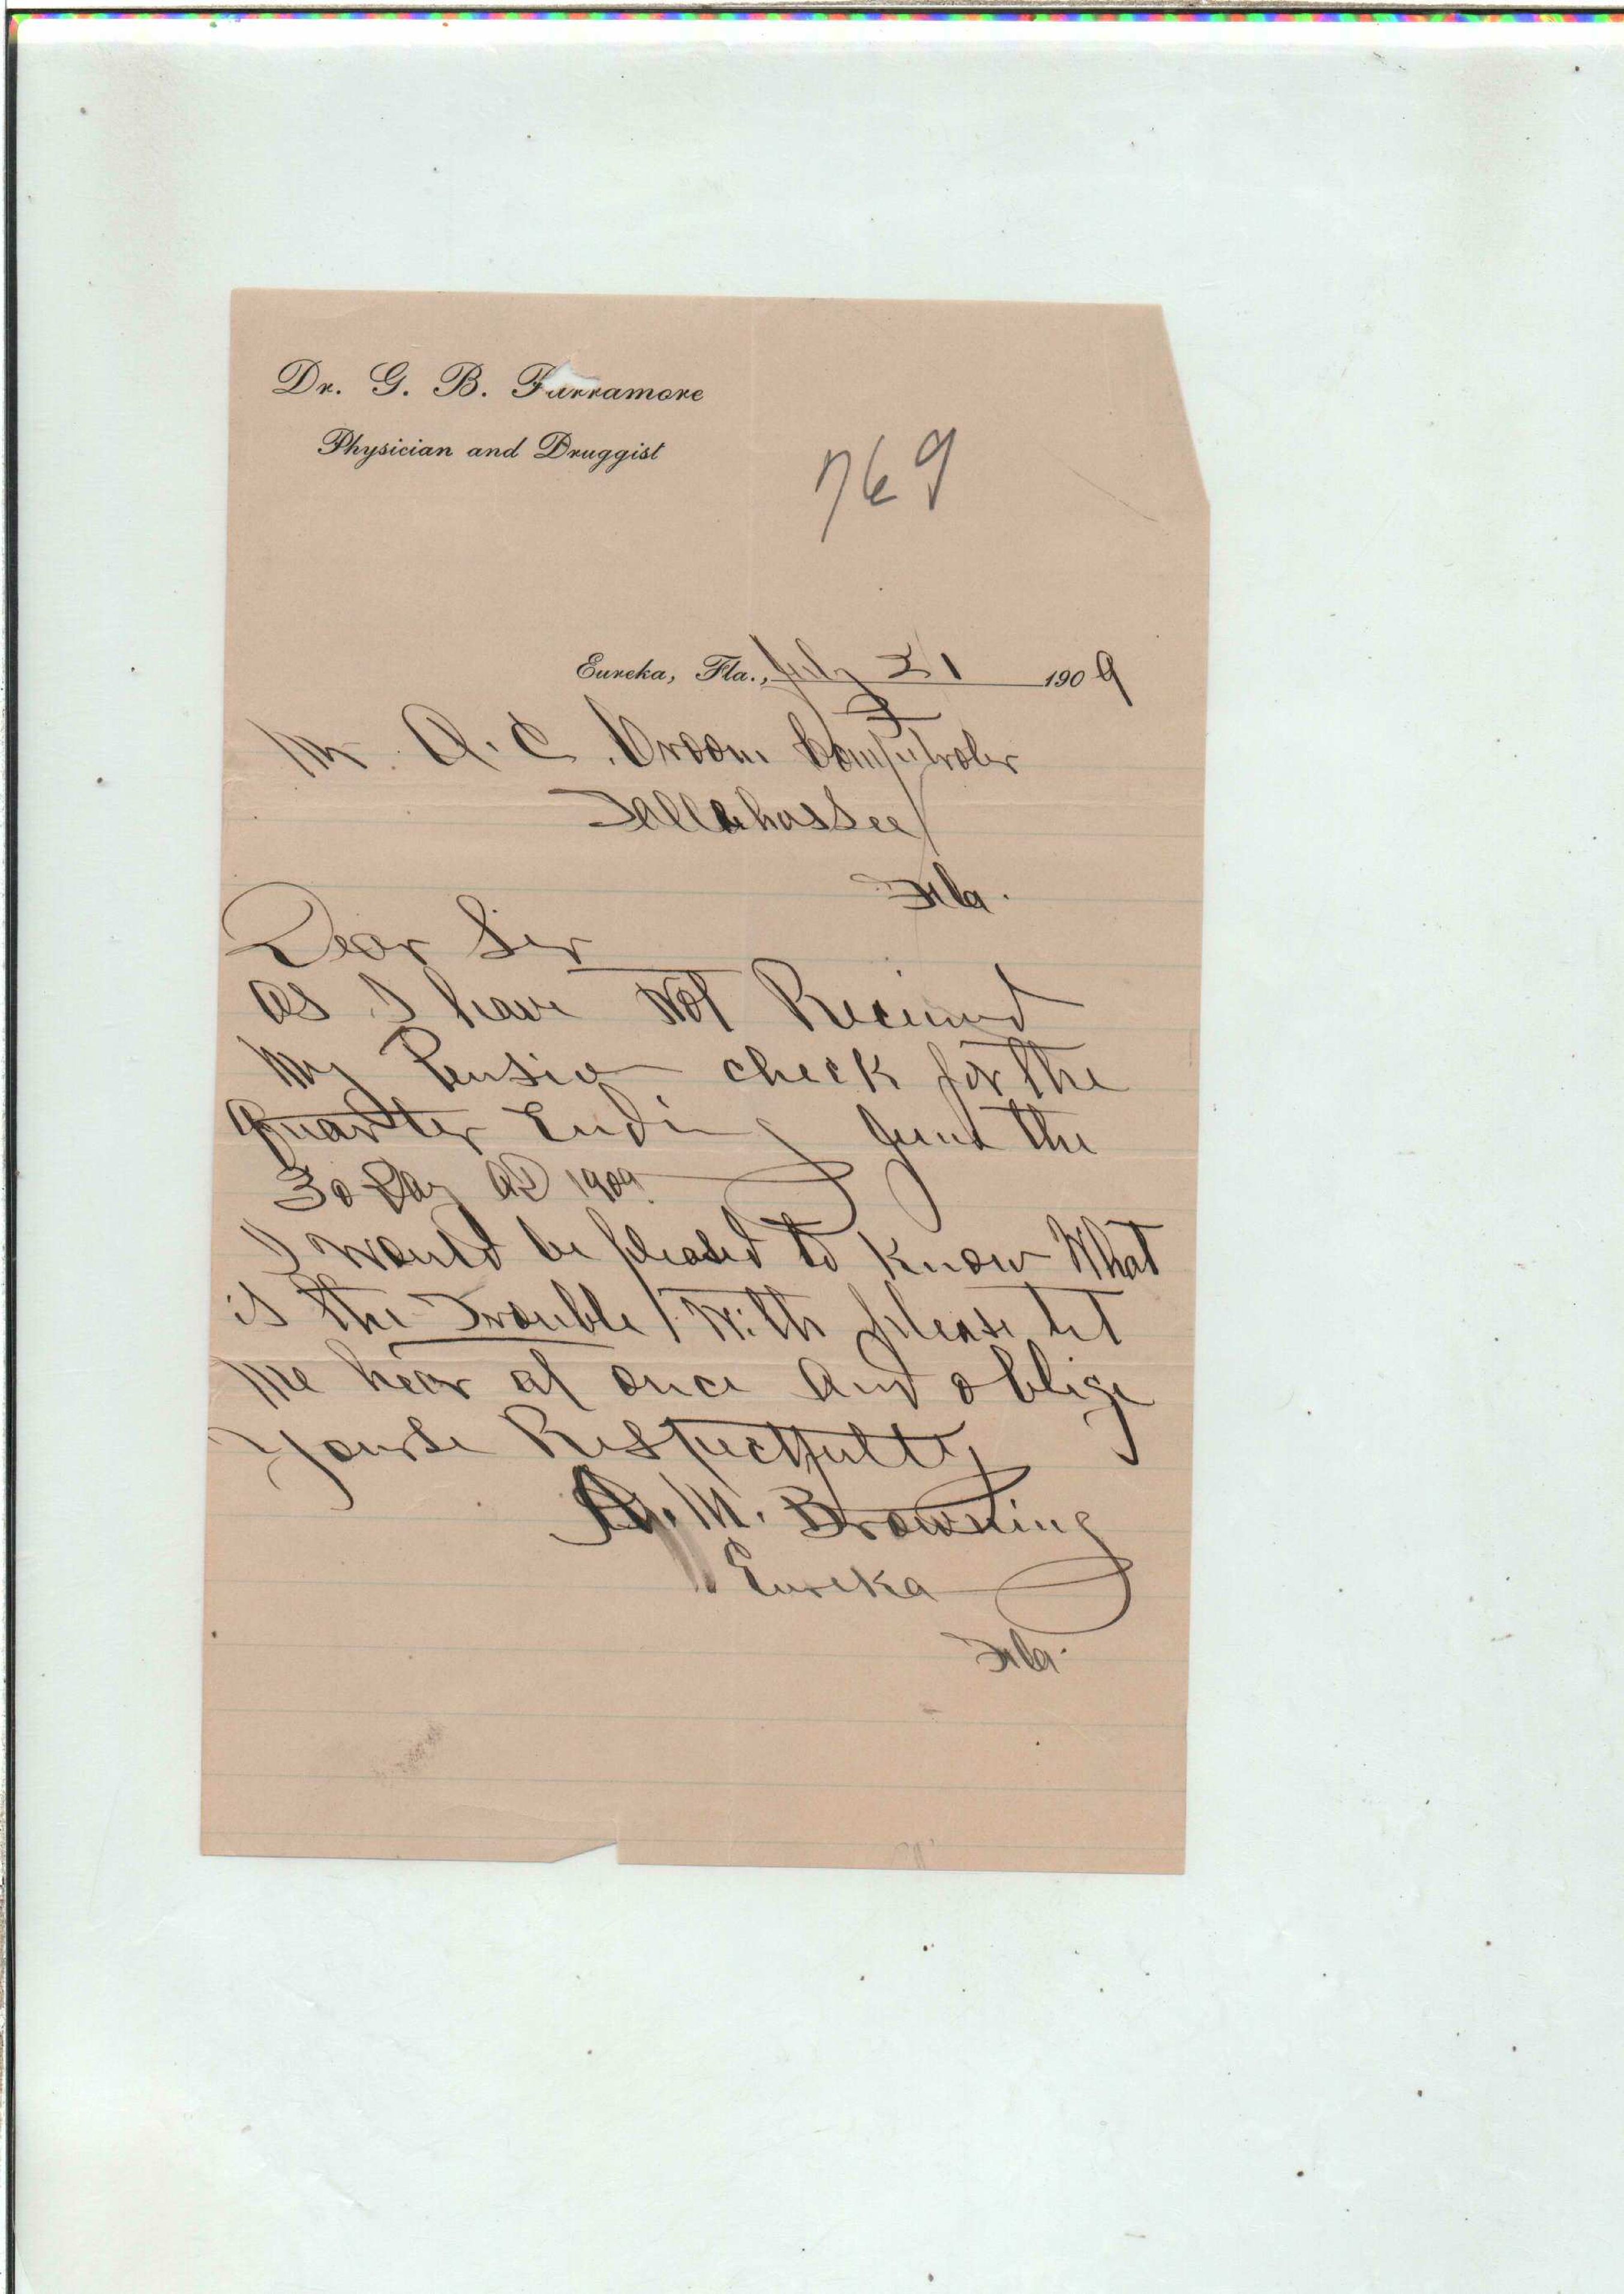 Dr. G. B. Farramore
Physician and Druggist
769
Eureka, Fla., July 21 1909
Mr. A. C. Croom Comptroler
Tallahassee
Fla.
Dear Sir
as I have Not Recieved
My Pension check for the
Quarter Ending June the
30 Day AD 1909
I would be pleased to know What
is the Trouble With please let
me hear at once and oblige
yourse Respectfully
A. M. Browning
Eureka
Fla.